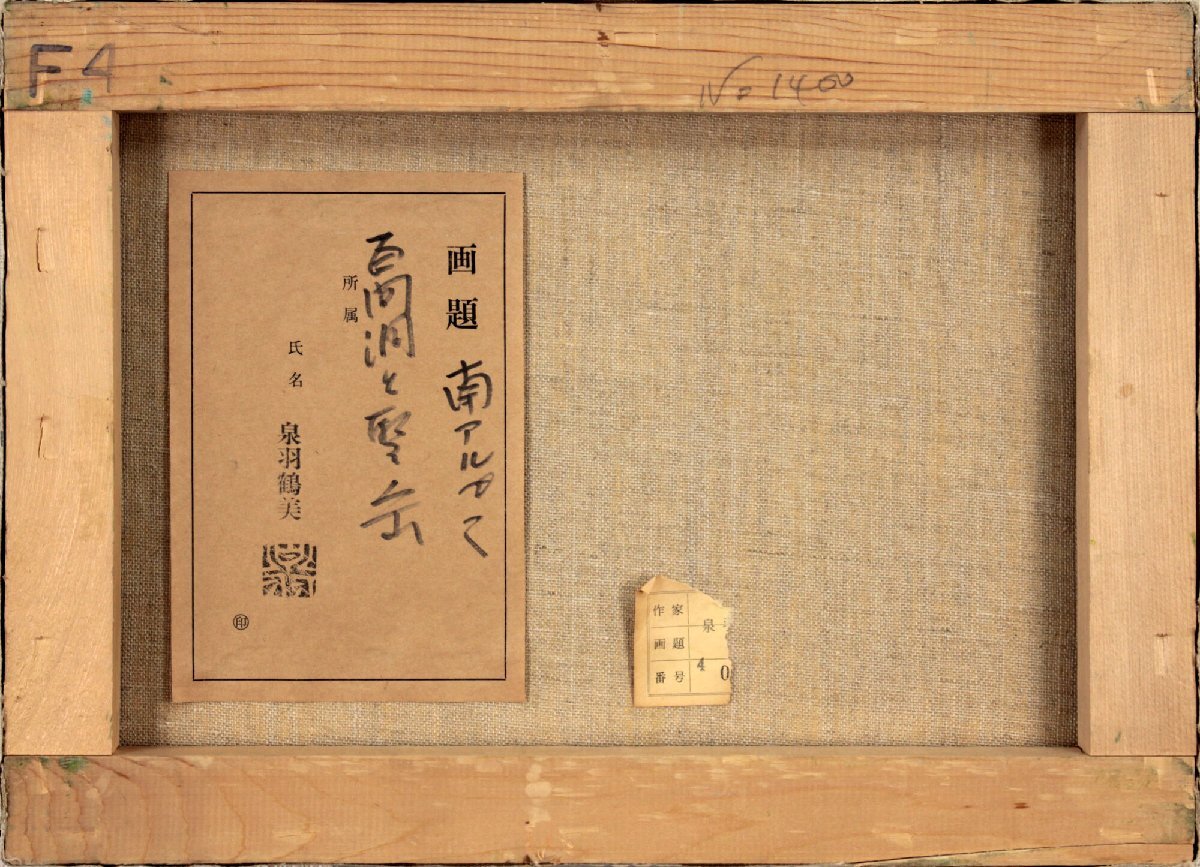 F4
N=1400
画題 南アルプス
百間洞と聖岳
所属
氏名 泉羽鶴美
印
作家 泉
画題
番号 40